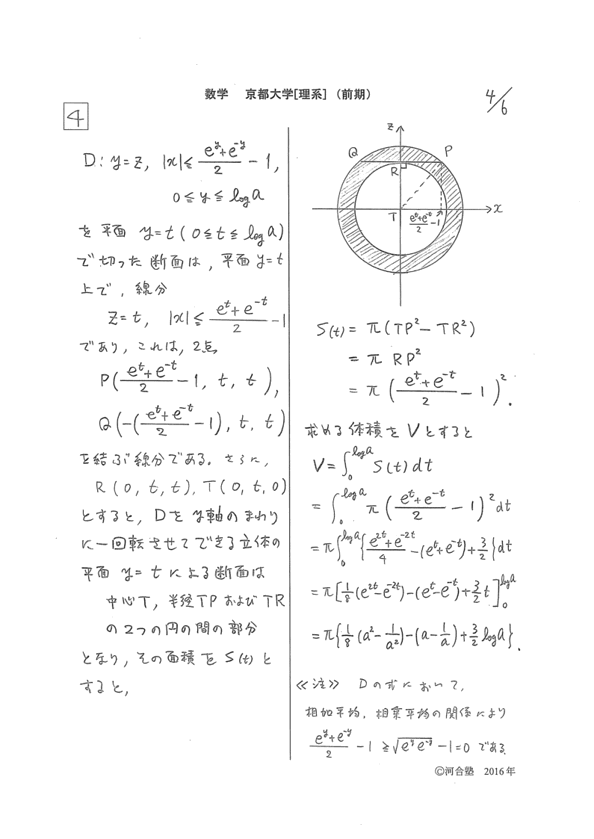 数学　京都大学[理系]　(前期)
4/6
4
D: y=z, |x|≦(e^y+e^{-y})/2 - 1,
0≦y≦log a
を平面 y=t (0≦t≦log a)
で切った断面は, 平面 y=t
上で, 線分
z=t, |x|≦(e^t+e^{-t})/2 - 1
であり, これは, 2点
P((e^t+e^{-t})/2 - 1, t, t),
Q(-((e^t+e^{-t})/2 - 1), t, t)
を結ぶ線分である. さらに,
R(0, t, t), T(0, t, 0)
とすると, Dをy軸のまわり
に一回転させてできる立体の
平面 y=t による断面は
中心T, 半径TPおよびTR
の2つの円の間の部分
となり, その面積をS(t)と
すると,
z
Q
P
R
T
x
(e^t+e^{-t})/2 - 1
S(t) = π(TP²-TR²)
= π RP²
= π((e^t+e^{-t})/2 - 1)².
求める体積をVとすると
V=∫_0^{log a} S(t)dt
=∫_0^{log a} π((e^t+e^{-t})/2 - 1)²dt
=π∫_0^{log a}{(e^{2t}+e^{-2t})/4-(e^t+e^{-t})+3/2}dt
=π[1/8(e^{2t}-e^{-2t})-(e^t-e^{-t})+3/2 t]_0^{log a}
=π{1/8(a²-1/a²)-(a-1/a)+3/2 log a}.
≪注≫ Dの式において,
相加平均, 相乗平均の関係により
(e^y+e^{-y})/2 - 1 ≧ √(e^y e^{-y}) - 1=0 である.
©河合塾　2016年